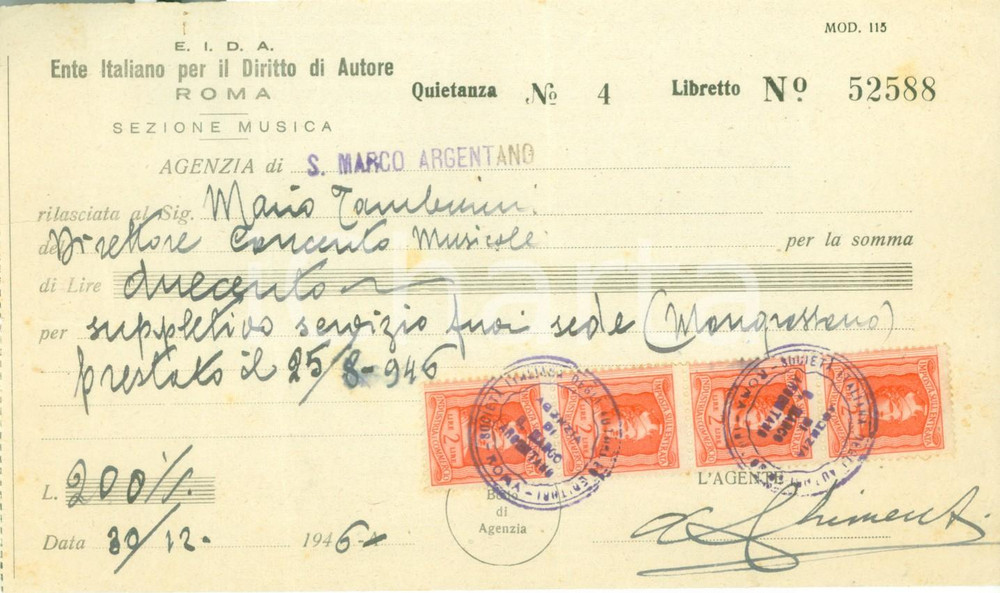 MOD. 115
E. I. D. A.
Ente Italiano per il Diritto di Autore
ROMA
Quietanza No 4 Libretto No 52588
SEZIONE MUSICA
AGENZIA di S. MARCO ARGENTANO
rilasciata al Sig. Mario Tamburini
del Direttore Concerto Musicale per la somma
di Lire duecento
per suppletivo servizio fuori sede (Mongrassano)
prestato il 25/8-946
L. 200
L'AGENTE
Bollo
di
Agenzia
Data 30/12. 1946
LIRE 2 LIRE 2 LIRE 2 2
charta